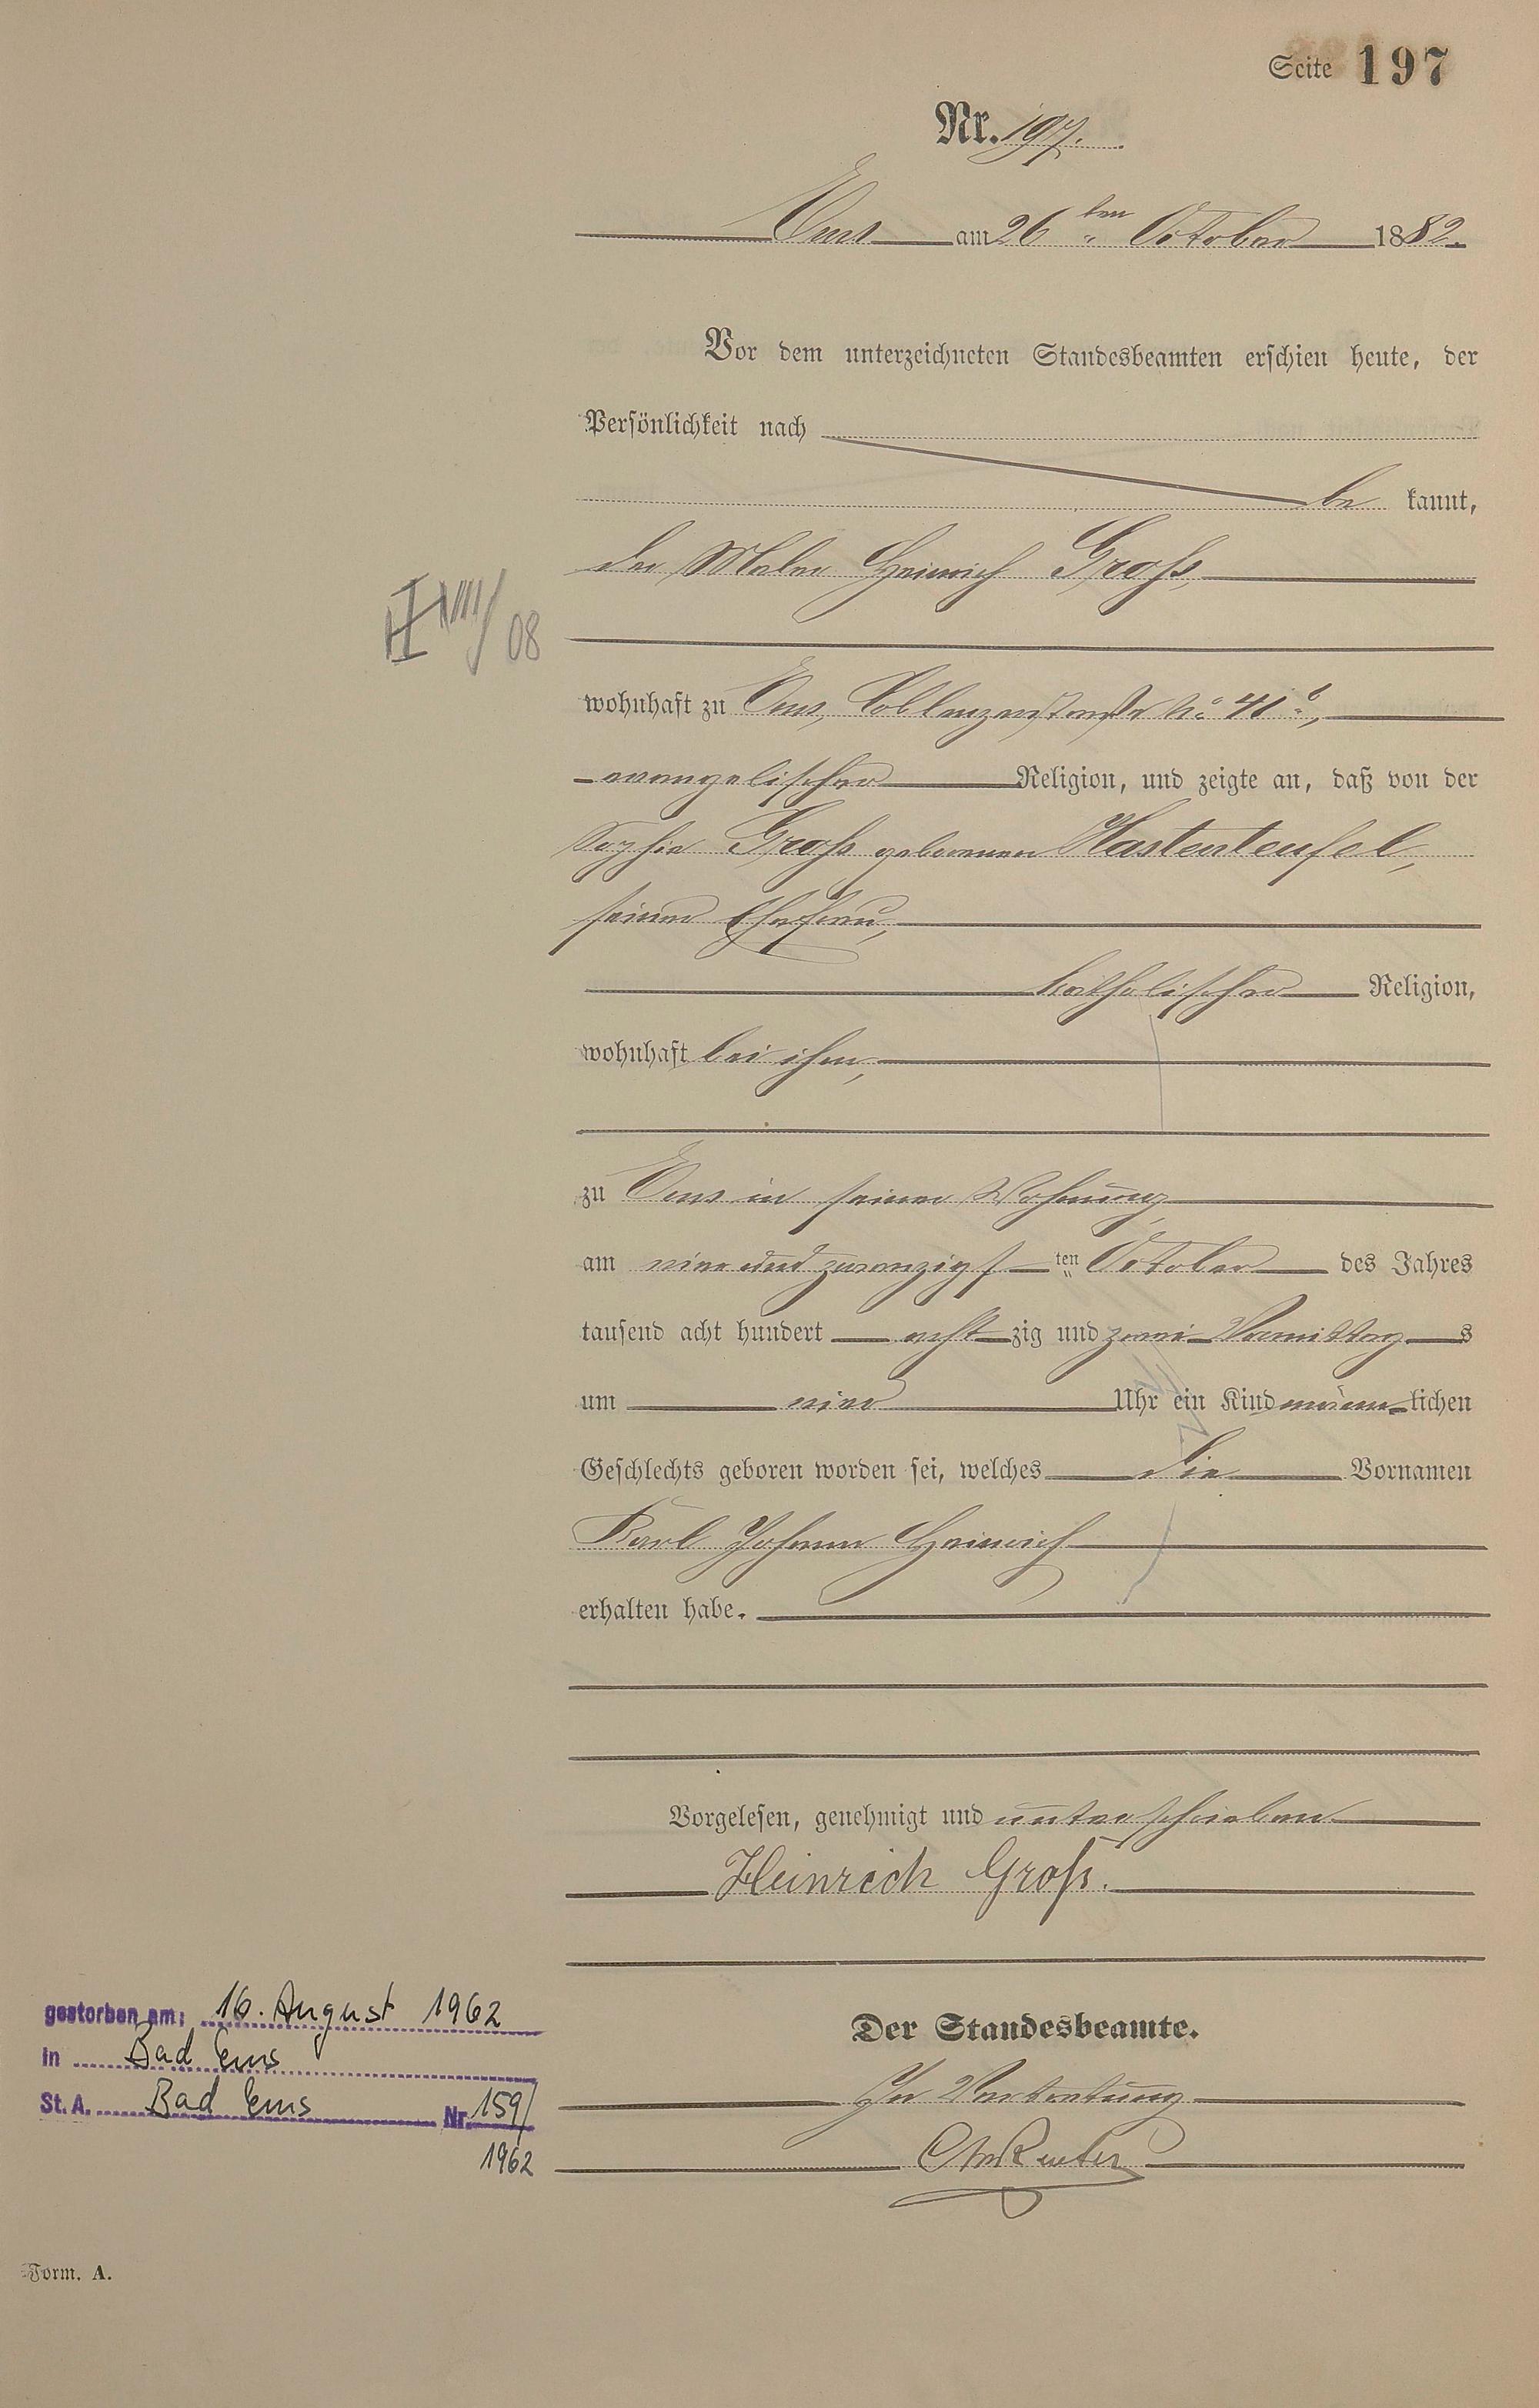 Seite 197
Nr. 197.
Ems am 26ten October 1882.
Vor dem unterzeichneten Standesbeamten erschien heute, der
Persönlichkeit nach
be kannt,
der Maler Heinrich Groß,
wohnhaft zu Ems, Coblenzerstraße No 41
evangelischer Religion, und zeigte an, daß von der
Sophie Groß geborenen Hastenteufel,
seiner Ehefrau,
katholischer Religion,
wohnhaft bei ihm,
zu Ems in seiner Wohnung
am vier und zwanzigsten October des Jahres
tausend acht hundert acht zig und zwei Vormittags
um vier Uhr ein Kind männlichen
Geschlechts geboren worden sei, welches die Vornamen
Karl Johann Heinrich
erhalten habe.
Vorgelesen, genehmigt und unterschrieben
Heinrich Groß.
Der Standesbeamte.
In Vertretung
gestorben am: 16. August 1962
in Bad Ems
St. A. Bad Ems Nr. 159/
1962
Form. A.